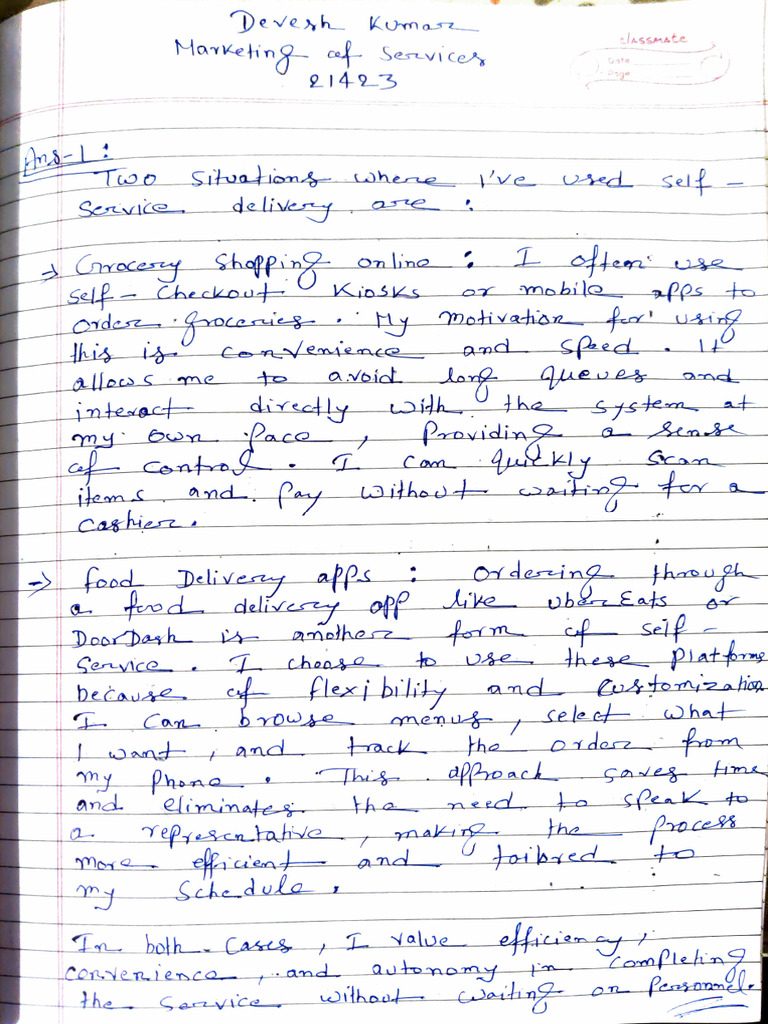 Devesh Kumar
Marketing of Services
21423
classmate
Date
Page
Ans-1:
Two situations where I've used self-
service delivery are :
→ Grocery shopping online : I often use
self-checkout kiosks or mobile apps to
order groceries. My motivation for using
this is convenience and speed. It
allows me to avoid long queues and
interact directly with the system at
my own pace, providing a sense
of control. I can quickly scan
items and pay without waiting for a
cashier.
→ Food Delivery apps : Ordering through
a food delivery app like UberEats or
DoorDash is another form of self-
service. I choose to use these platforms
because of flexibility and customization
I can browse menus, select what
I want, and track the order from
my phone. This approach saves time
and eliminates the need to speak to
a representative, making the process
more efficient and tailored to
my schedule.
In both cases, I value efficiency,
convenience, and autonomy in completing
the service without waiting on personnel.